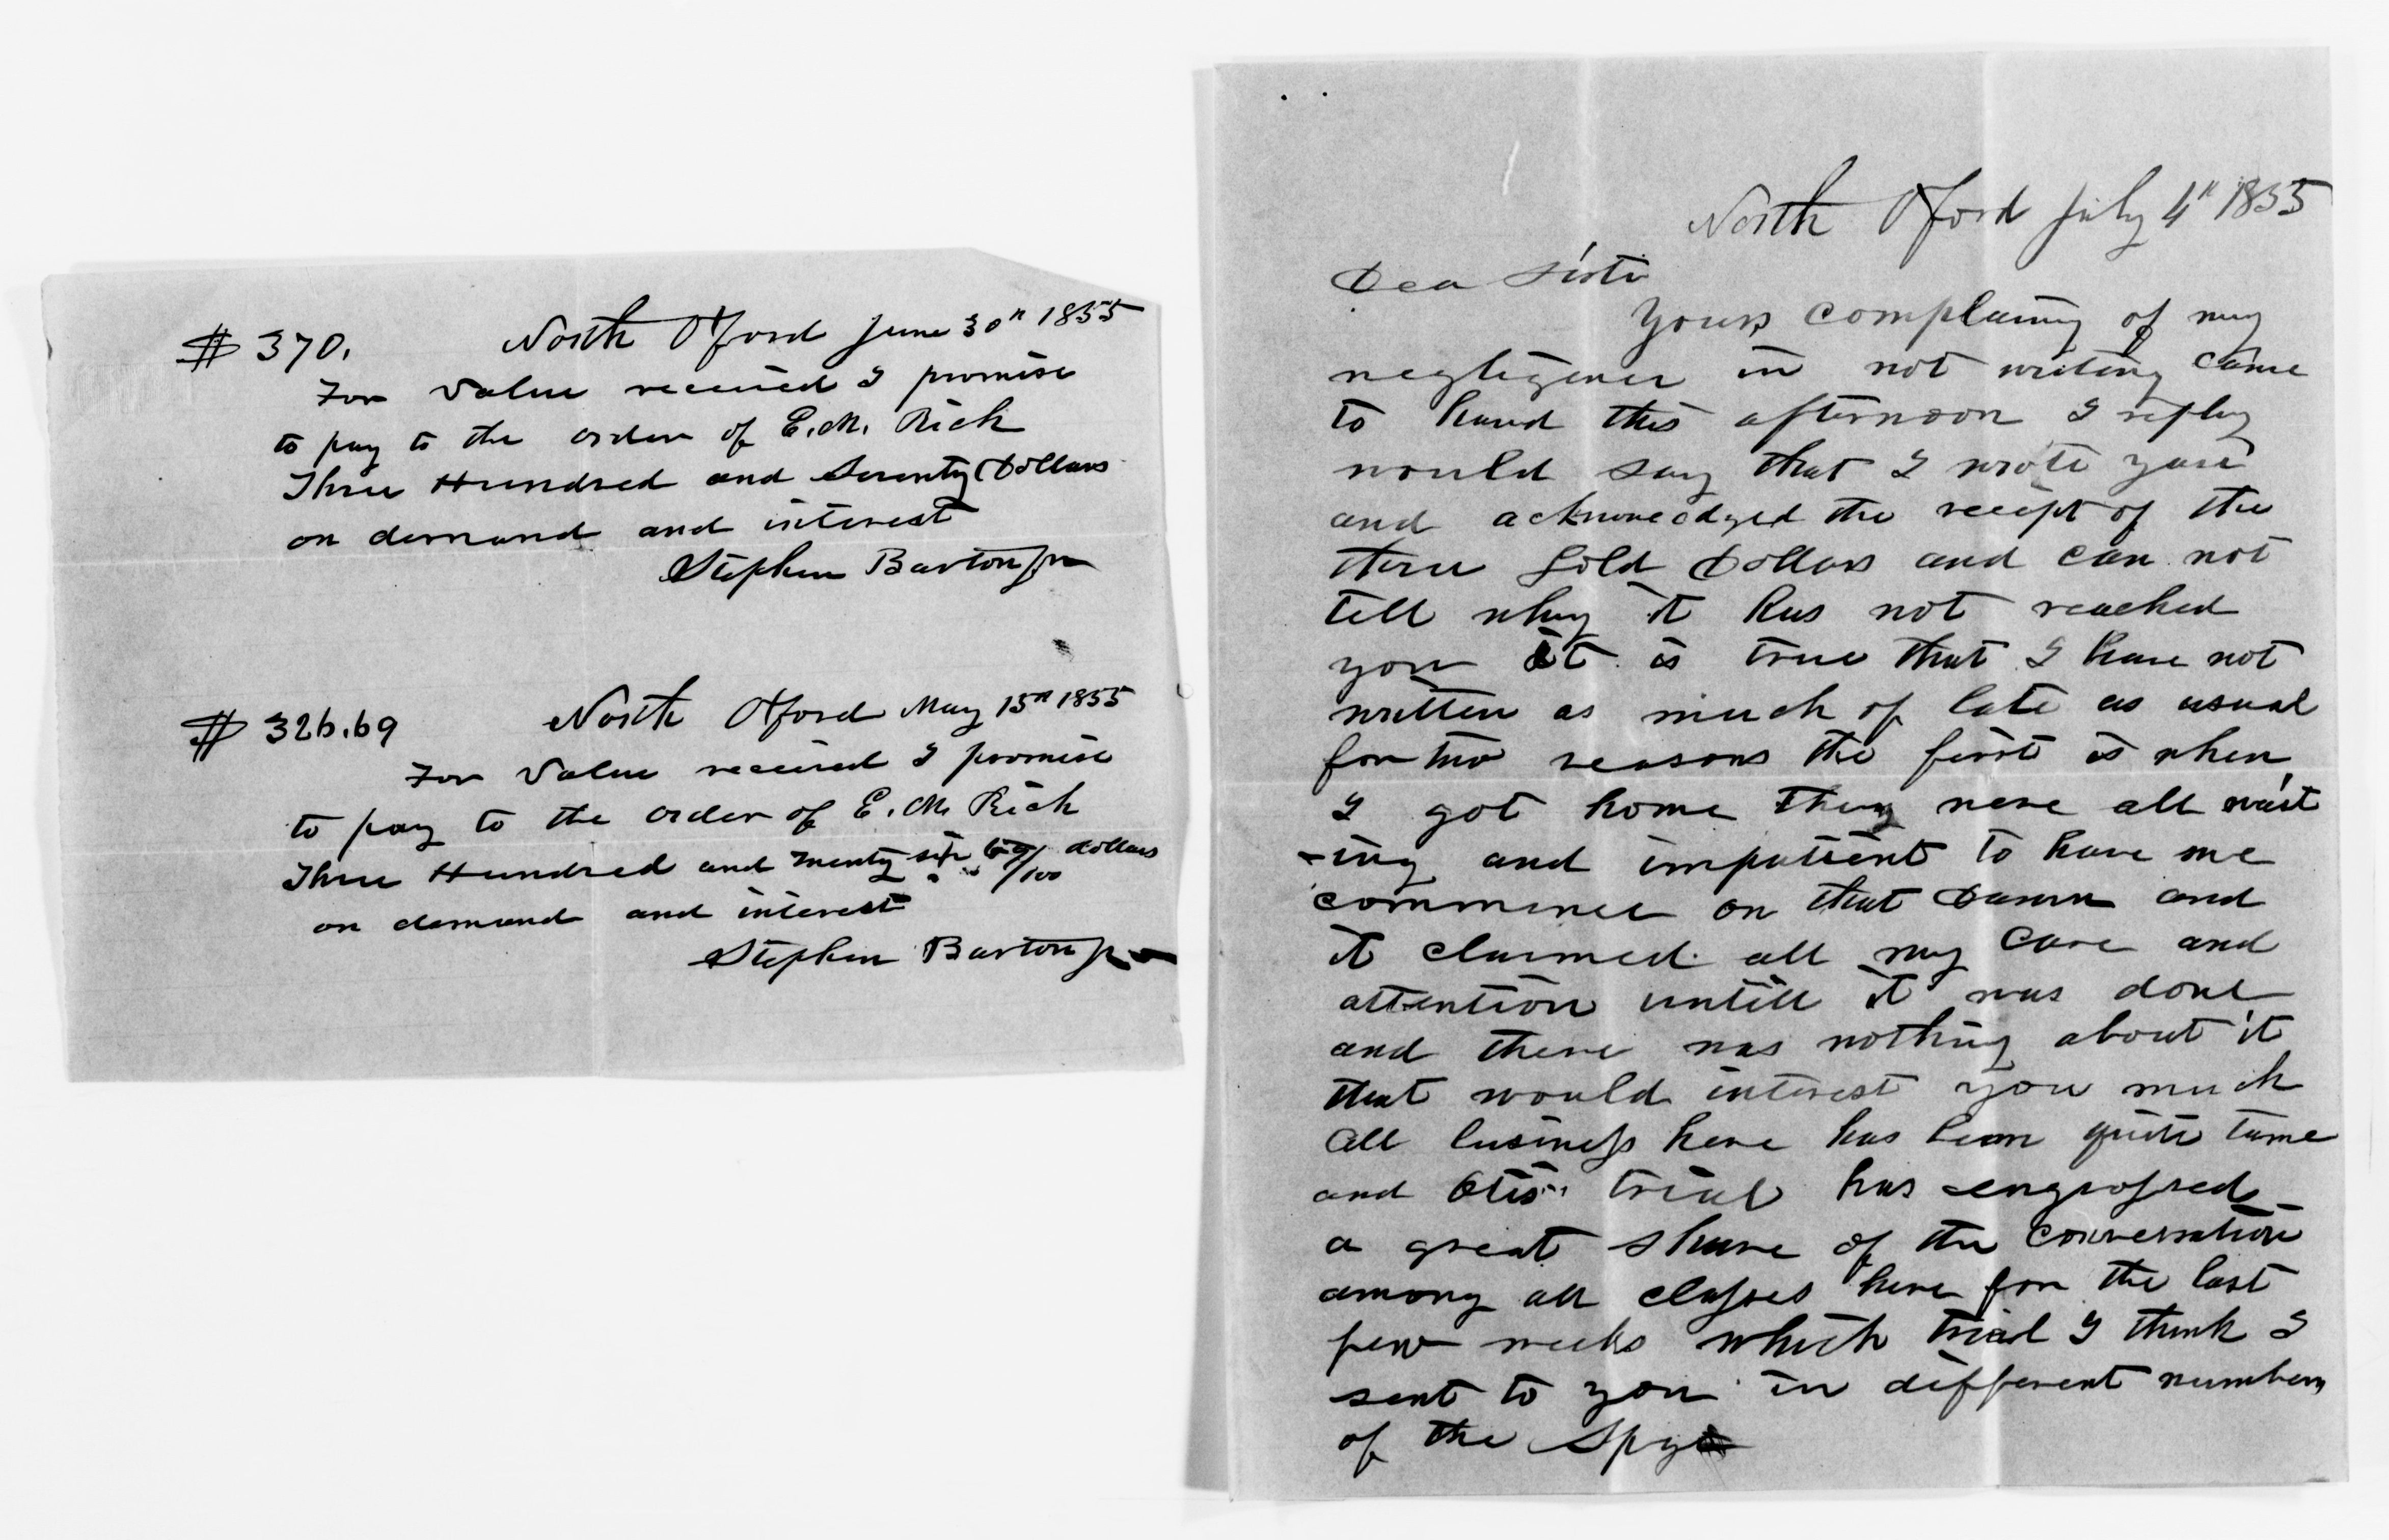 $ 370. North Oxford June 30th 1855
For value received I promise
to pay to the order of E. M. Rich
Three Hundred and Seventy Dollars
on demand and interest
Stephen Barton Jr
$ 326.69 North Oxford May 15th 1855
For value received I promise
to pay to the order of E. M. Rich
Three Hundred and twenty six 69/100 dollars
on demand and interest
Stephen Barton Jr
North Oxford July 4th 1855
Dear Sister
Yours complaining of my
negligence in not writing came
to hand this afternoon I reply
would say that I wrote you
and acknowledged the receipt of the
three Gold Dollars and can not
tell why it has not reached
you it is true that I have not
written as much of late as usual
for two reasons the first is when
I got home they were all wait
-ing and impatient to have me
commence on that Damn and
it claimed all my care and
attention untill it was done
and there was nothing about it
that would interest you much
All business here has been quite tame
and Otis trial has engrossed
a great share of the conversation
among all classes here for the last
few weeks which trial I think I
sent to you in different numbers
of the Spy